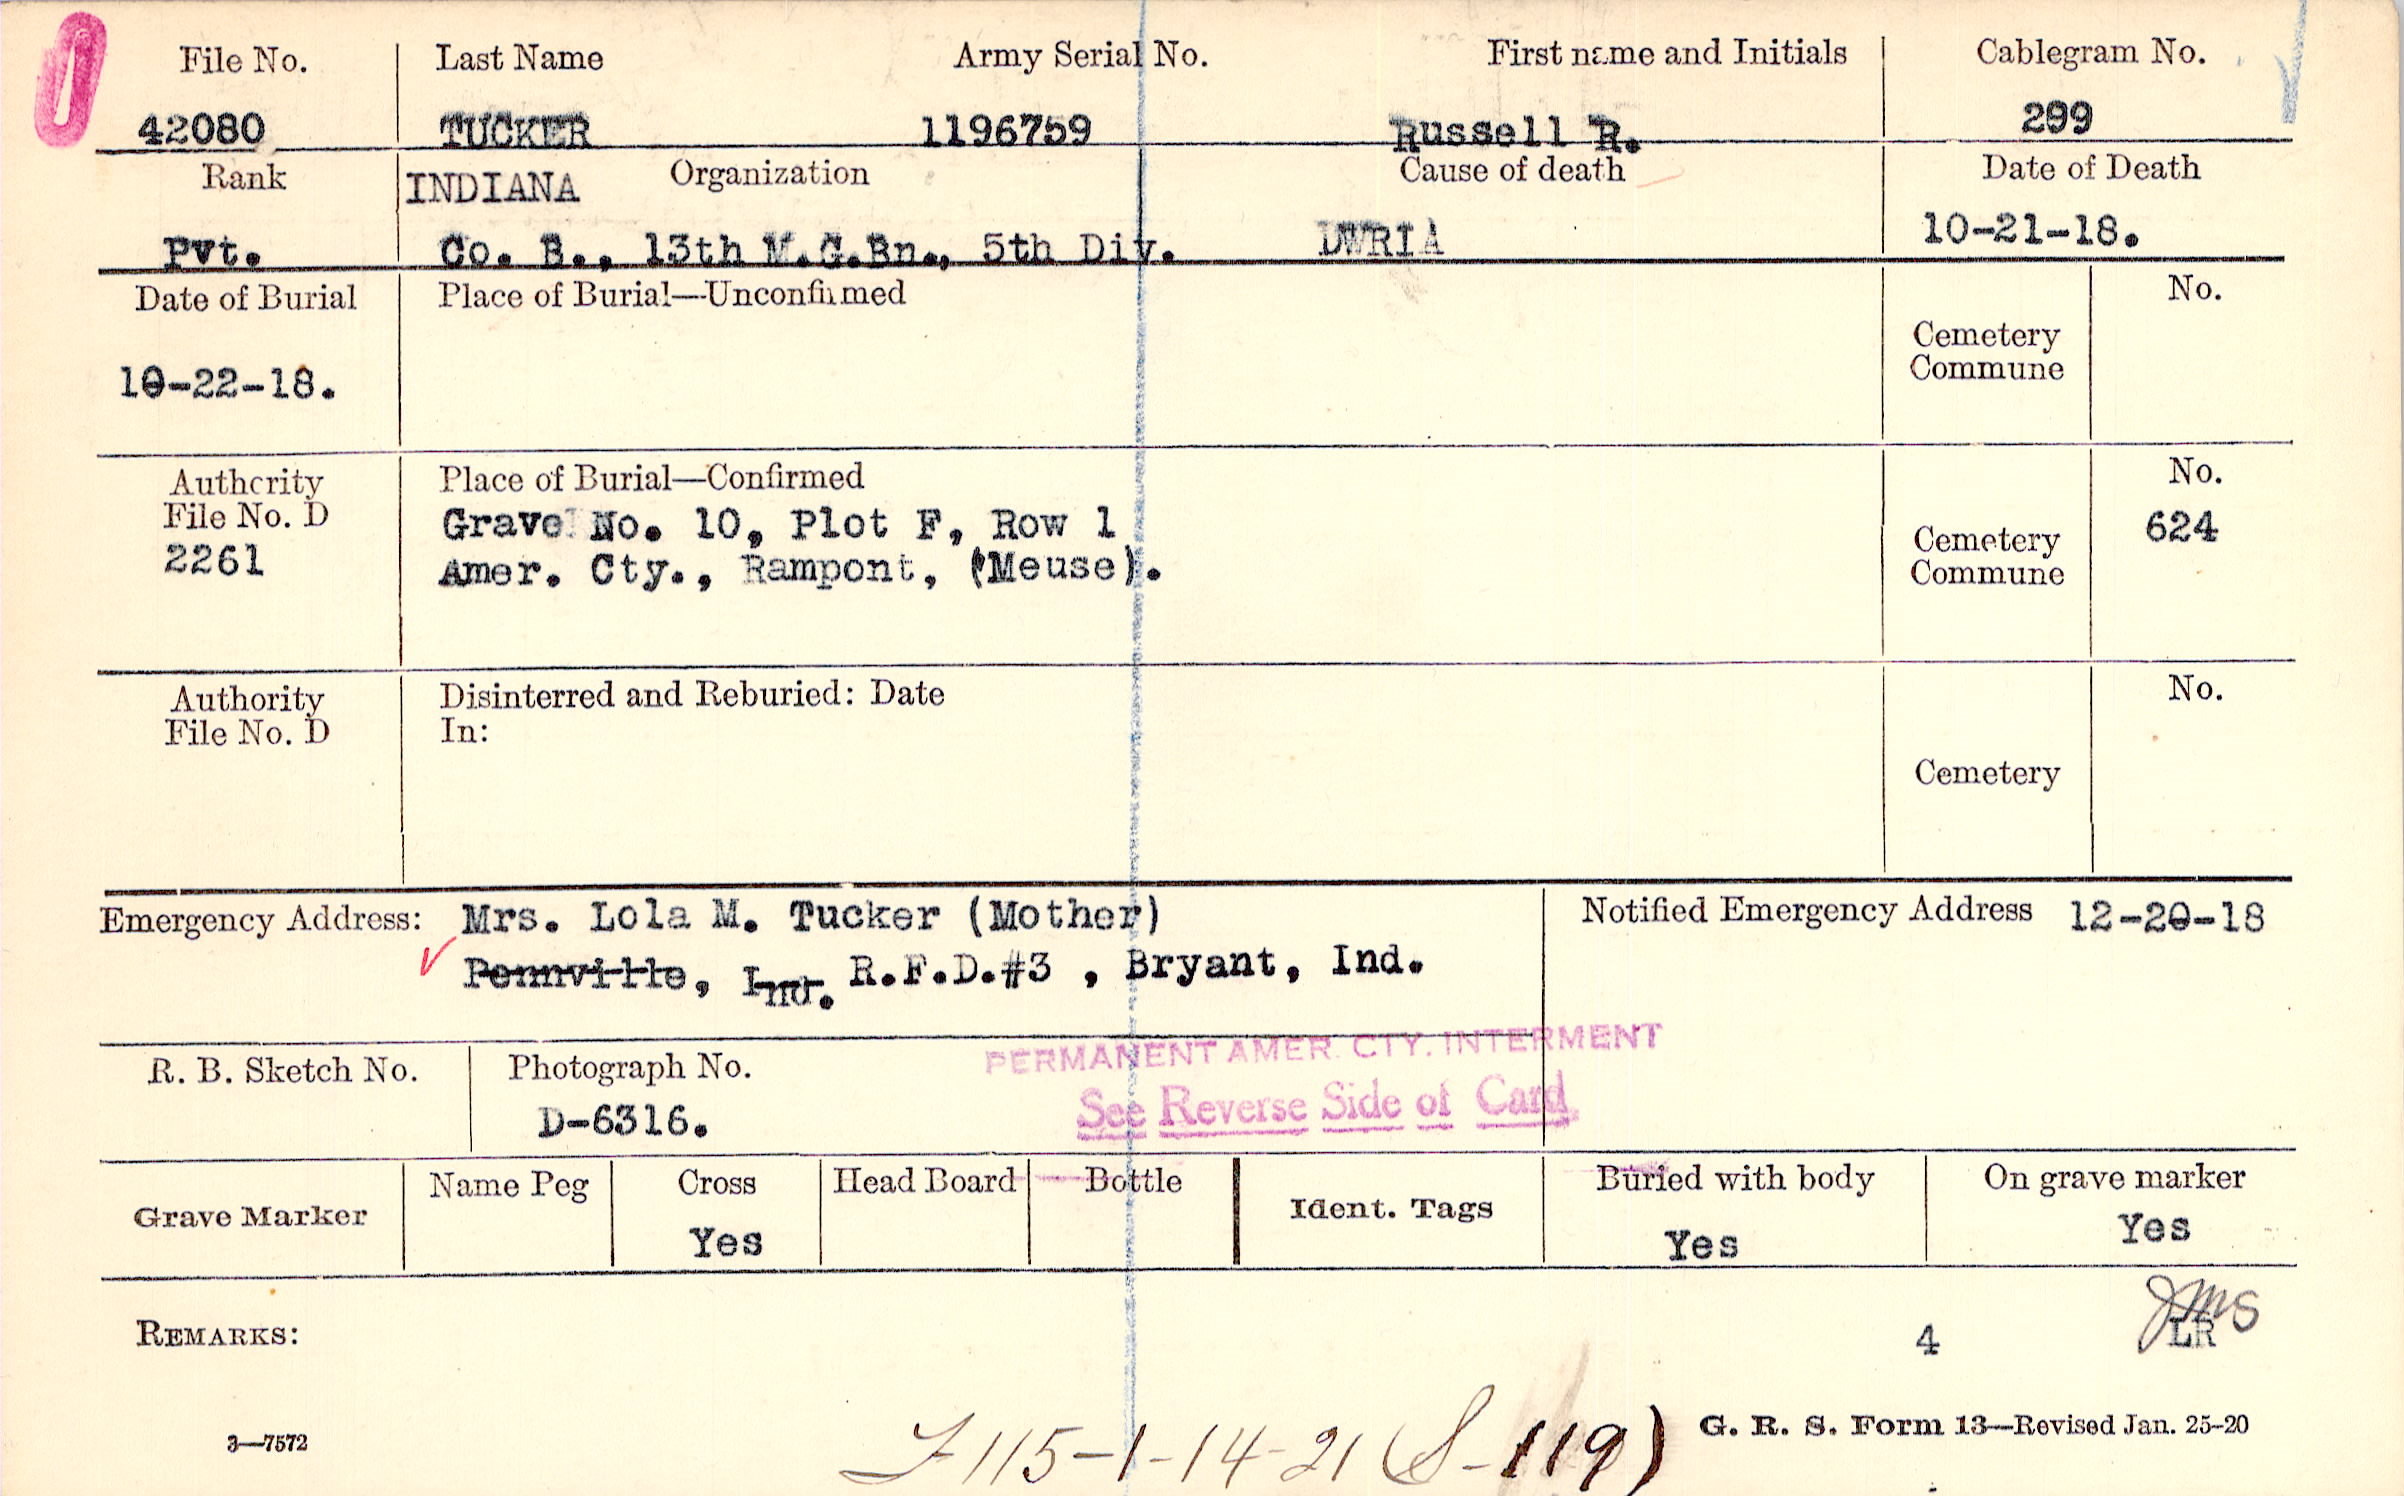 File No. Last Name Army Serial No. First name and Initials Cablegram No.
42080 TUCKER 1196759 Russell R. 299
Rank INDIANA Organization Cause of death Date of Death
Pvt. Co. B., 13th M.G.Bn., 5th Div. DWRIA 10-21-18.
Date of Burial Place of Burial—Unconfirmed No.
Cemetery
Commune
10-22-18.
Authority Place of Burial—Confirmed No.
File No. D Grave No. 10, Plot F, Row 1 624
2261 Amer. Cty., Rampont, (Meuse).
Cemetery
Commune
Authority Disinterred and Reburied: Date No.
File No. D In:
Cemetery
Emergency Address: Mrs. Lola M. Tucker (Mother) Notified Emergency Address 12-20-18
Pennville, Ind. R.F.D.#3 , Bryant, Ind.
PERMANENT AMER. CTY. INTERMENT
R. B. Sketch No. Photograph No.
D-6316. See Reverse Side of Card
Grave Marker Name Peg Cross Head Board Bottle Ident. Tags Buried with body On grave marker
Yes Yes Yes
JMS
REMARKS: 4 LR
3—7572 F115-1-14-21 (S-119) G. R. S. Form 13—Revised Jan. 25-20